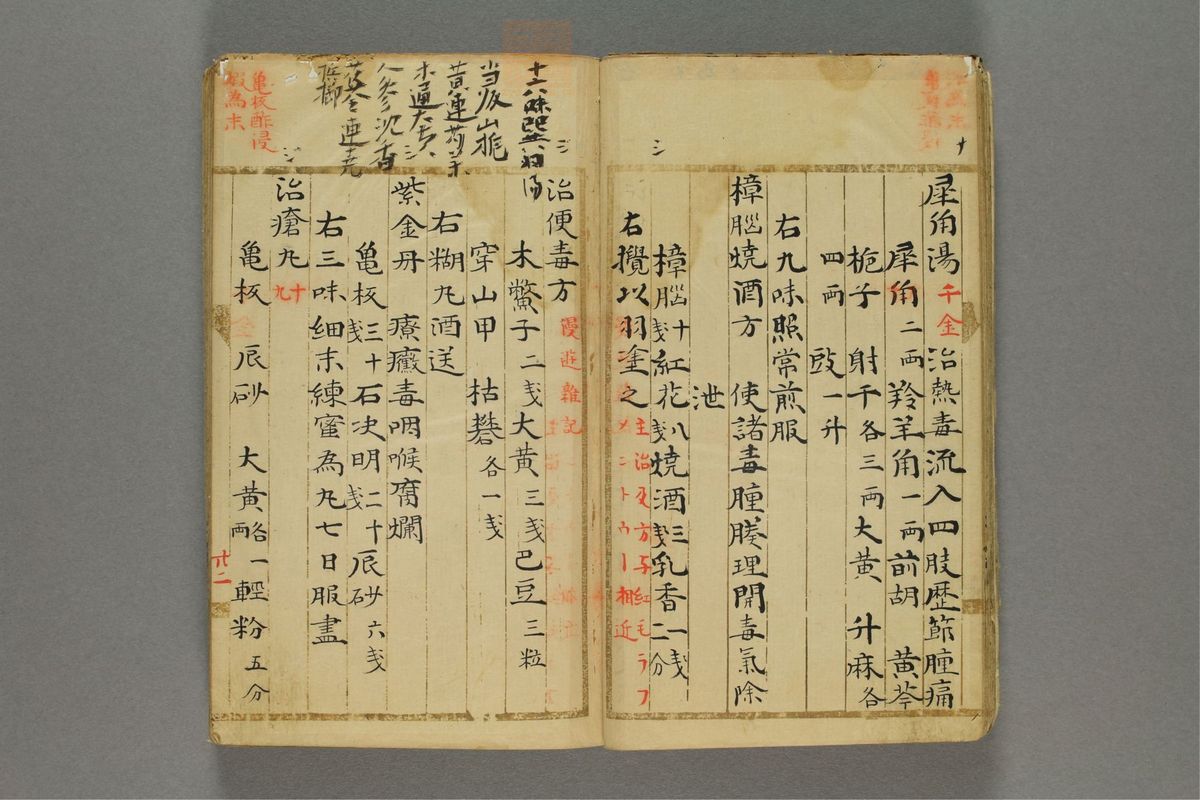 犀角湯 千金 治熱毒流入四肢歴節腫痛
犀角二両 羚羊角一両 前胡 黄芩
梔子 射干各三両 大黄 升麻各
四両 豉一升
右九味照常煎服
樟腦燒酒方 使諸毒腫腠理開毒氣除
泄
樟腦十戔 紅花八戔 燒酒三戔 乳香一戔二分
右攪以羽塗之
主治及方与紅毛ラフ
メントウー相近
治便毒方 漫遊雜記
木鱉子二戔 大黄三戔 巴豆三粒
穿山甲 枯礬各一戔
右糊丸酒送
紫金丹 療癥毒咽喉腐爛
亀板三十戔 石决明二十戔 辰砂六戔
右三味細末練蜜為丸七日服盡
治瘡丸 十九
亀板 辰砂 大黄各一両 輕粉五分
十六味
当皈山梔
黄連芍
木通大
人参沉香
連
亀板酢浸
為末
廿二